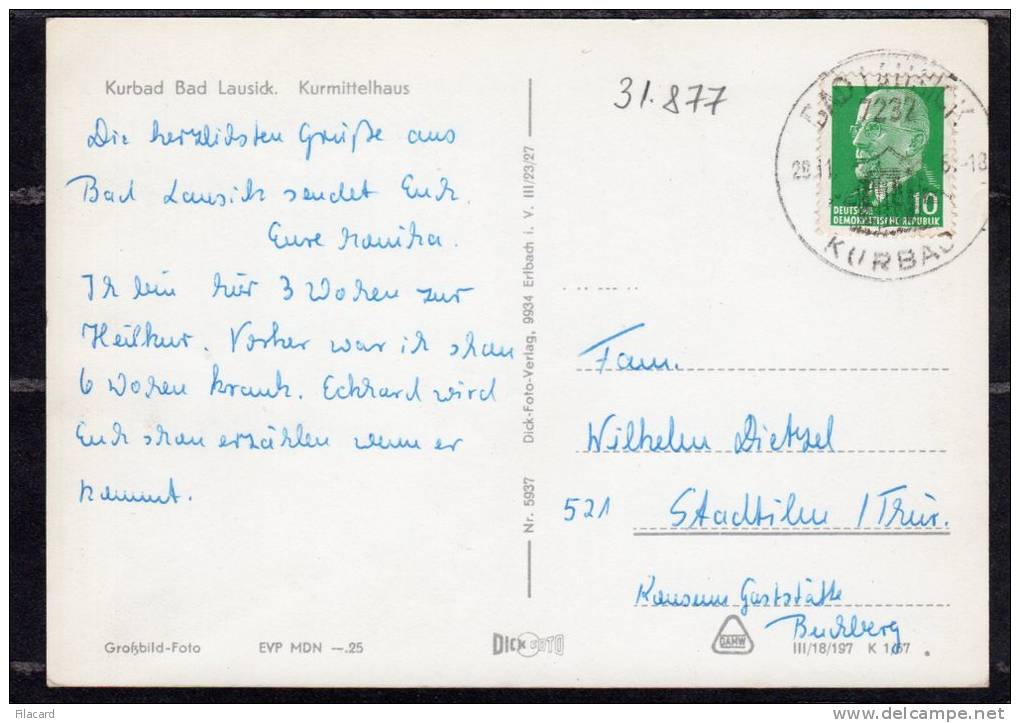 Kurbad Bad Lausick. Kurmittelhaus
31.877
Die herzlichsten Grüße aus
Bad Lausick sendet Euch
Eure Monika.
Ich bin hier 3 Wochen zur
Heilkur. Vorher war ich schon
6 Wochen krank. Eckhard wird
Euch schon erzählen wenn er
kommt.
Großbild-Foto EVP MDN —.25
Nr. 5937 Dick-Foto-Verlag, 9934 Erlbach i. V. III/23/27
DICK FOTO
BAD LAUSICK
7232
28.11.
-18
KURBAD
10
DEUTSCHE
DEMOKRATISCHE REPUBLIK
Fam.
Wilhelm Dietzel
521 Stadtilm / Thür.
Konsum Gaststätte
Buchberg
DAMW
III/18/197 K 1/67
Filacard
www.delcampe.net